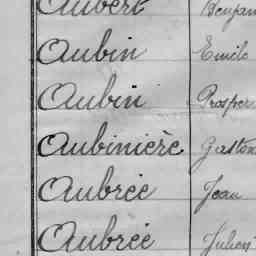 Aubert Benjam
Aubin Emile
Aubin Prosper
Aubinière Gaston
Aubrée Jean
Aubrée Julien